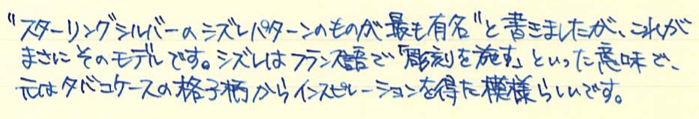 "スターリングシルバーのシズレパターンのものが最も有名"と書きましたが、これが
まさにそのモデルです。シズレはフランス語で「彫刻を施す」といった意味で、
元はタバコケースの格子柄からインスピレーションを得た模様らしいです。